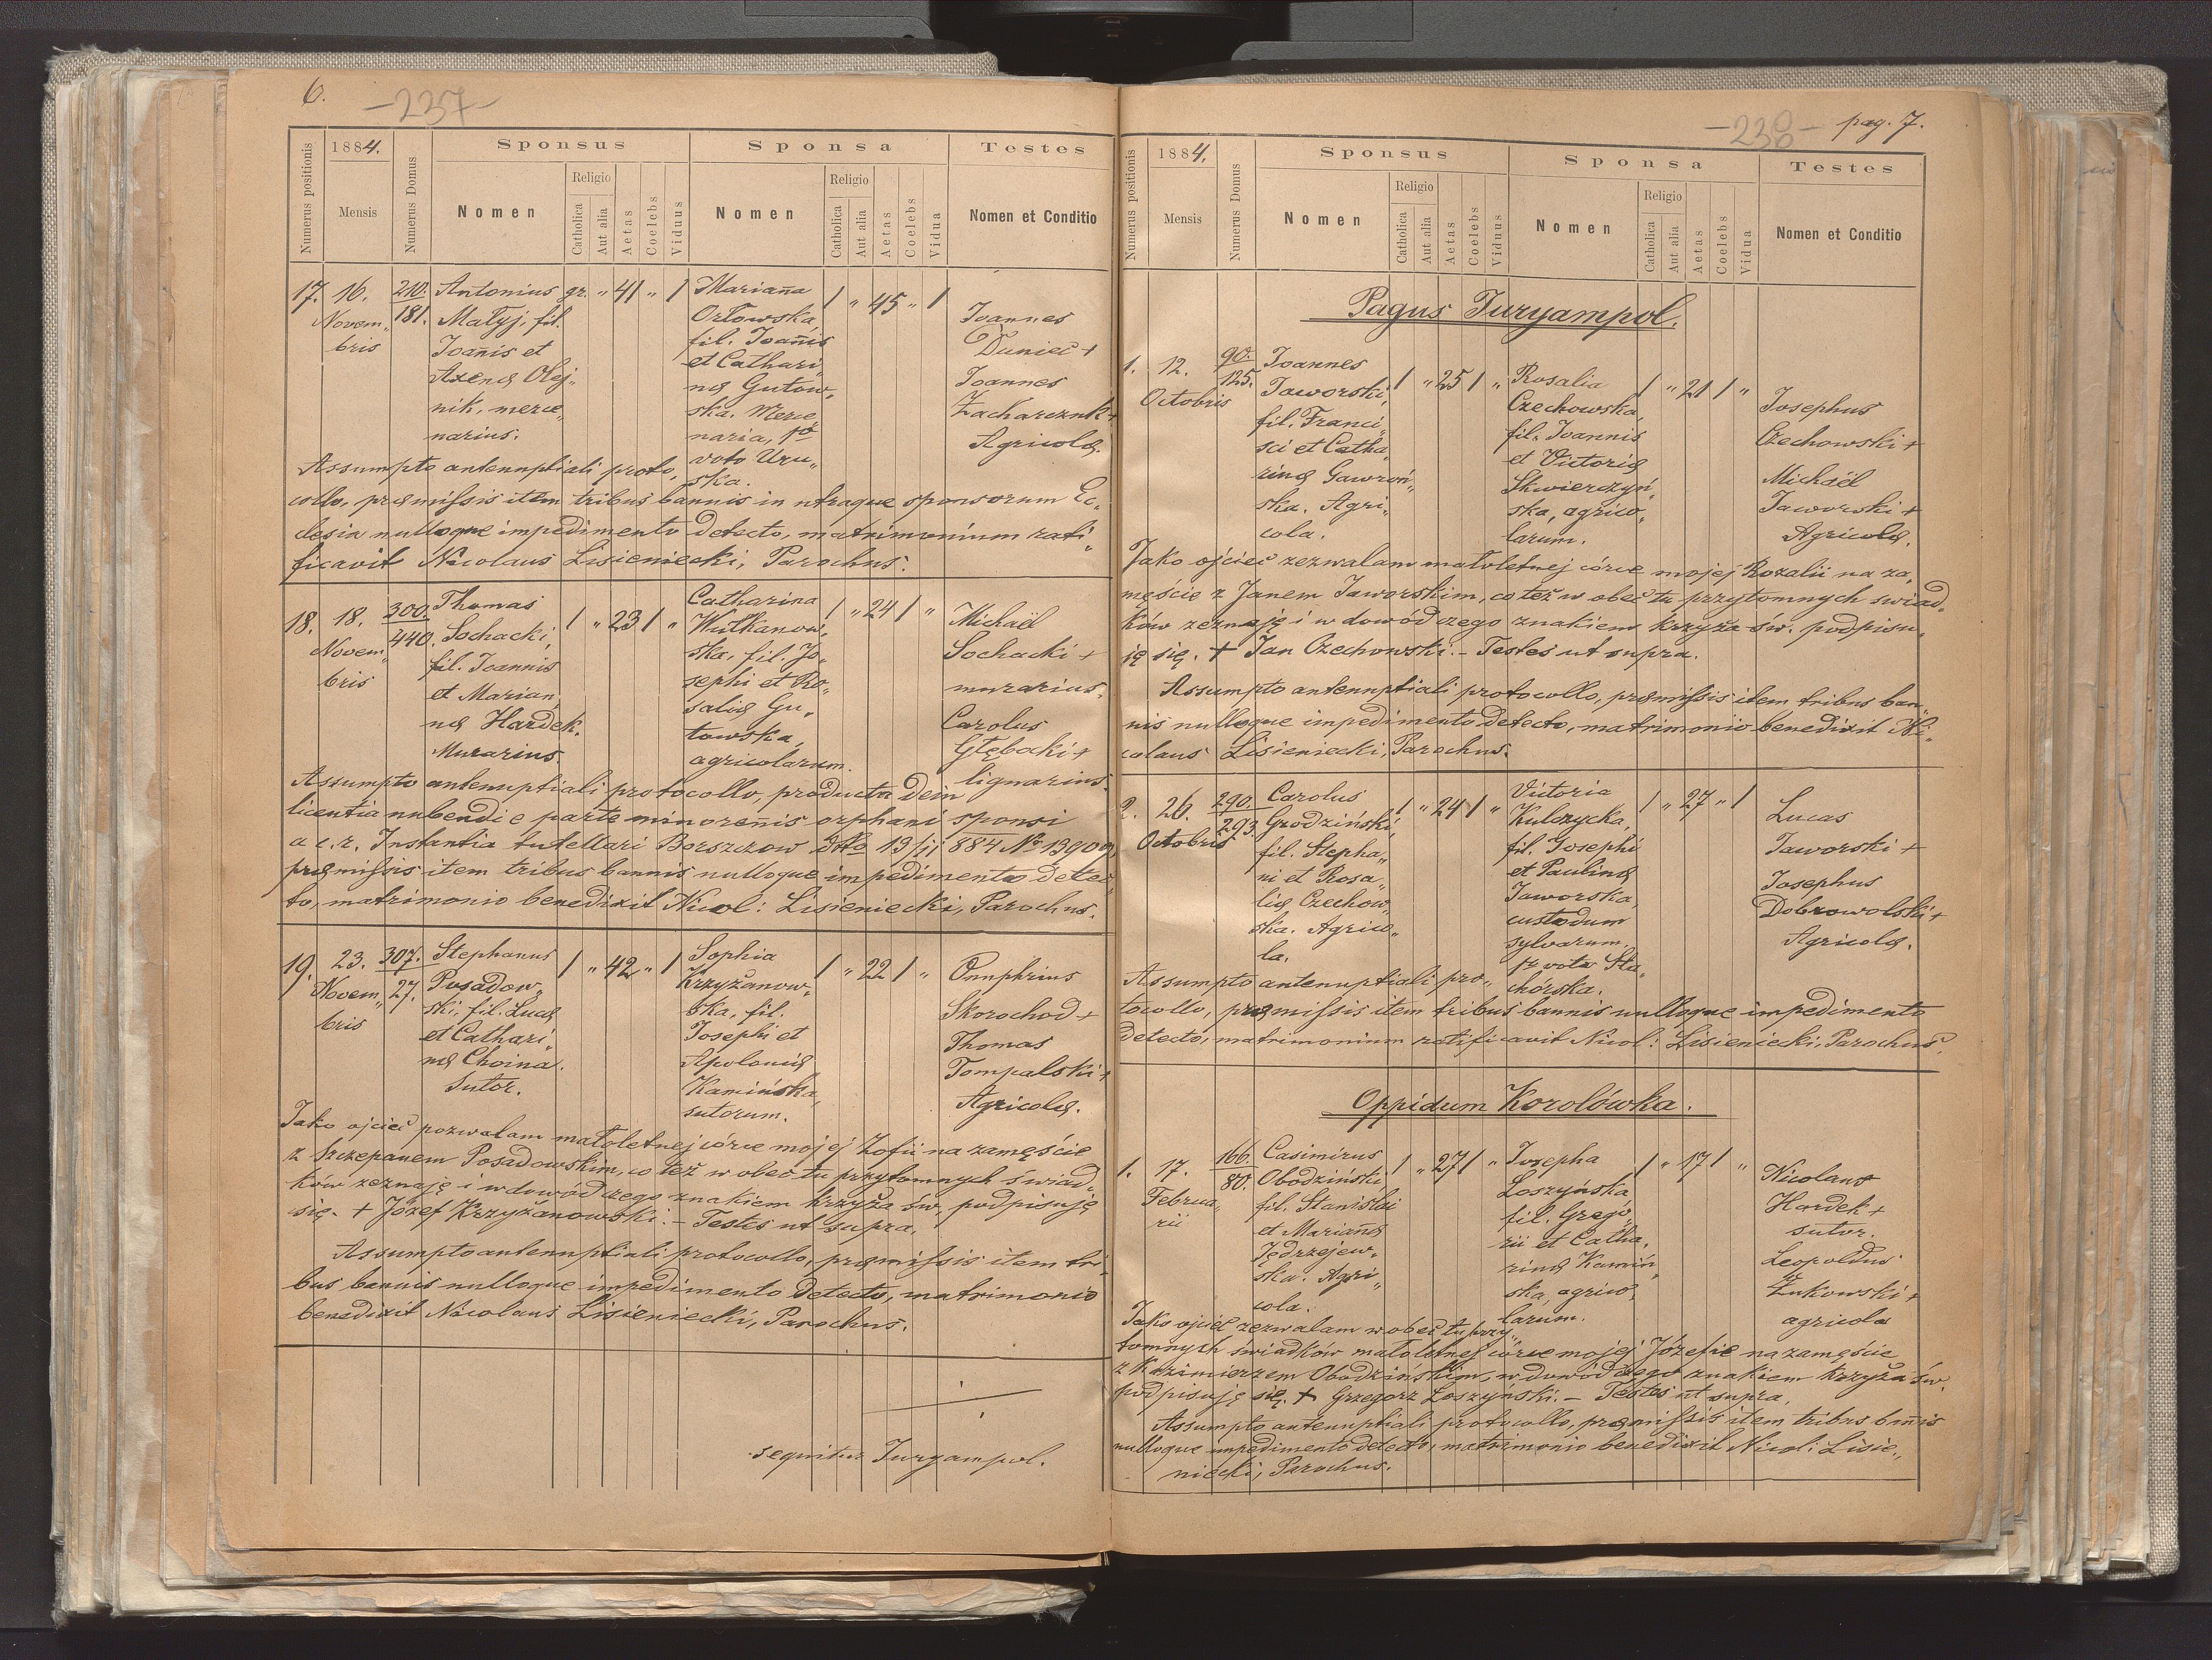 6.
-237-
Numerus positionis
1884.
Mensis
Numerus Domus
Sponsus
Nomen
Religio
Catholica
Aut alia
Aetas
Coelebs
Viduus
Sponsa
Nomen
Religio
Catholica
Aut alia
Aetas
Coelebs
Vidua
Testes
Nomen et Conditio
17. 16. Novem„ bris
210. 181.
Antonius
Małyj, fil.
Joan̄is et
Axenæ Olej„
nik, merce„
narius.
gr. „ 41 „ 1
Marian̄a
Orłowska,
fil. Joan̄is
et Cathari„
næ Gutow„
ska. Merce„
naria, 1º
voto Uru„
ska.
1 „ 45 „ 1
Joannes
Duniec +
Joannes
Zacharczuk +
Agricolæ.
Assumpto antenuptiali proto„
collo, præmissis item tribus bannis in utraque sponsorum Ec„
clesia nulloque impedimento detecto, matrimonium rati„
ficavit Nicolaus Lisieniecki, Parochus.
18. 18. Novem„ bris
300. 440.
Thomas
Sochacki,
fil. Joannis
et Marian„
næ Hardek.
Murarius.
1 „ 23 1 „
Catharina
Wułkanow„
ska, fil. Jo„
sephi et Ro„
saliæ Gu„
towska,
agricolarum.
1 „ 24 1 „
Michaël
Sochacki +
murarius.
Carolus
Głębocki +
lignarius.
Assumpto antenuptiali protocollo, producta dein
licentia nubendi e parte minoren̄is orphani sponsi
a c. r. Instantia tutellari Borszczow ddto 13/11 884 № 13909,
præmissis item tribus bannis nulloque impedimento detec„
to, matrimonio benedixit Nicol: Lisieniecki, Parochus.
19. 23. Novem„ bris
307. 27.
Stephanus
Posadow„
ski, fil. Lucæ
et Cathari„
næ Choina.
Sutor.
1 „ 42 „ 1
Sophia
Krzyżanow„
ska, fil.
Josephi et
Apoloniæ
Kamińska,
sutorum.
1 „ 22 1 „
Onuphrius
Skorochod +
Thomas
Tompalski +
Agricolæ.
Jako ojciec pozwalam małoletnej córce mojej Zofii na zamęście
z Szczepanem Posadowskim, co też w obec tu przytomnych świad„
ków zeznaję i w dowód czego znakiem krzyża św. podpisuję
się. + Józef Krzyżanowski. - Testes ut supra.
Assumpto antenuptiali protocollo, præmissis item tri„
bus bannis nulloque impedimento detecto, matrimonio
benedixit Nicolaus Lisieniecki, Parochus.
sequitur Juryampol.
-238- pag. 7.
Numerus positionis
1884.
Mensis
Numerus Domus
Sponsus
Nomen
Religio
Catholica
Aut alia
Aetas
Coelebs
Viduus
Sponsa
Nomen
Religio
Catholica
Aut alia
Aetas
Coelebs
Vidua
Testes
Nomen et Conditio
Pagus Juryampol.
1. 12. Octobris
90. 125.
Joannes
Jaworski,
fil. Franci„
sci et Catha„
rinæ Gawroń„
ska. Agri„
cola.
1 „ 25 1 „
Rosalia
Czechowska,
fil. Joannis
et Victoriæ
Skwierczyń„
ska, agrico„
larum.
1 „ 21 1 „
Josephus
Czechowski +
Michaël
Jaworski +
Agricolæ.
Jako ojciec zezwalam małoletnej córce mojej Rozalii na za„
męście z Janem Jaworskim, co też w obec tu przytomnych świad„
ków zeznaję i w dowód czego znakiem krzyża św. podpisu„
ję się. + Jan Czechowski. - Testes ut supra.
Assumpto antenuptiali protocollo, præmissis item tribus ban„
nis nulloque impedimento detecto, matrimonio benedixit Ni„
colaus Lisieniecki, Parochus.
2. 26. Octobris
290. 293.
Carolus
Grodziński,
fil. Stepha„
ni et Rosa„
liæ Czechow„
ska. Agrico„
la.
1 „ 24 1 „
Victoria
Kulczycka,
fil. Josephi
et Paulinæ
Jaworska,
custodum
sylvarum.
1º voto Sta„
chórska.
1 „ 27 „ 1
Lucas
Jaworski +
Josephus
Dobrowolski +
Agricolæ.
Assumpto antenuptiali pro„
tocollo, præmissis item tribus bannis nulloque impedimento
detecto, matrimonium ratificavit Nicol: Lisieniecki, Parochus.
Oppidum Korolówka.
1. 17. Februa„ rii
166. 80.
Casimirus
Obodziński
fil. Stanislai
et Marian̄æ
Jędrzejew„
ska. Agri„
cola.
1 „ 27 1 „
Josepha
Loszyńska,
fil. Grego„
rii et Catha„
rinæ Kamiń„
ska, agrico„
larum.
1 „ 17 1 „
Nicolaus
Hardek +
sutor.
Leopoldus
Żukowski +
agricola
Jako ojciec zezwalam w obec tu przy„
tomnych świadków małoletnej córce mojej Józefie na zamęście
z Kazimierzem Obodzińskim, w dowód czego znakiem krzyża św.
podpisuję się. + Grzegorz Loszyński. - Testes ut supra.
Assumpto antenuptiali protocollo, præmissis item tribus bn̄is
nulloque impedimento detecto, matrimonio benedixit Nicol: Lisie„
niecki, Parochus.